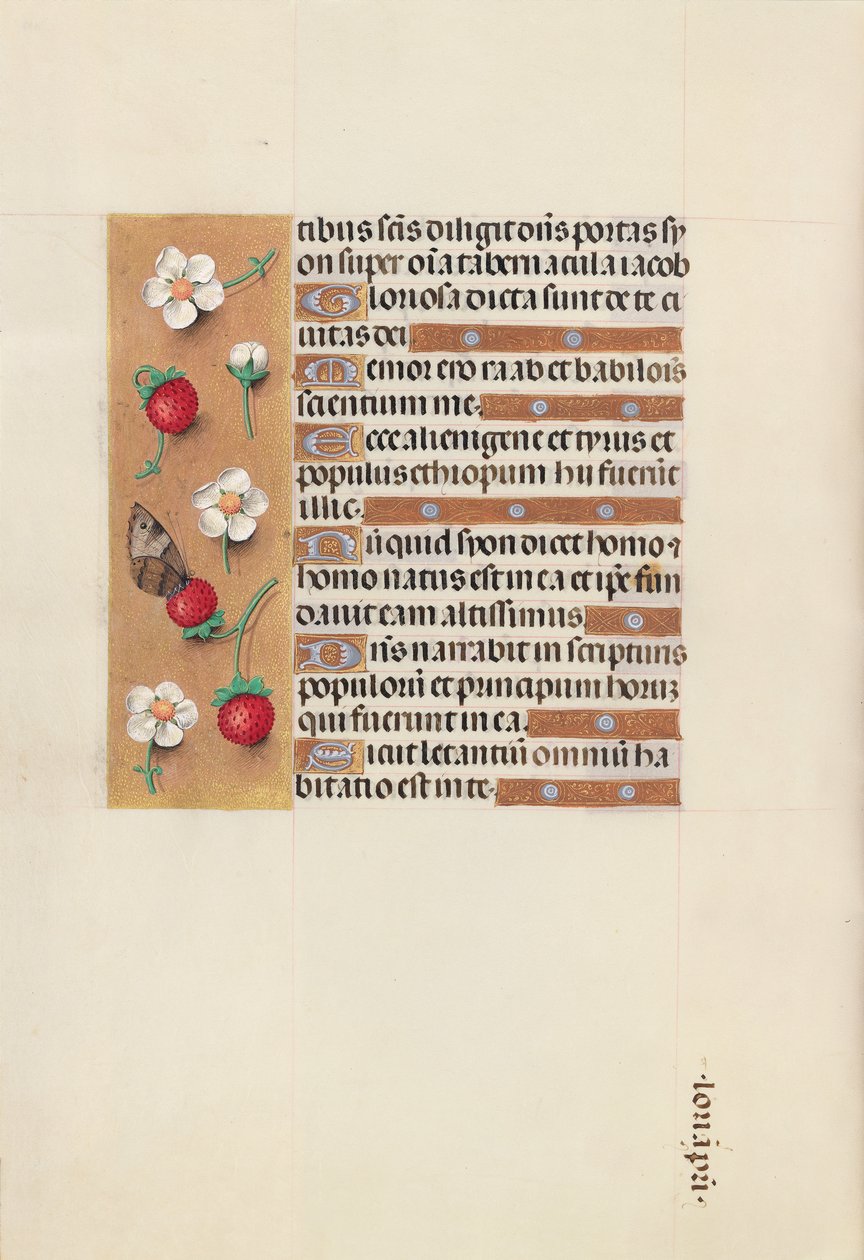 tibus sc̄is diligit dn̄s portas sy
on super om̄ia tabernacula iacob
Gloriosa dicta sunt de te ci
uitas dei
Memor ero raab et babilonis̄
scientium me.
Ecce alienigene et tyrus et
populus ethiopum hii fuerūt
illic.
Nūquid syon dicet homo ⁊
homo natus est in ea et ip̄e fun
dauit eam altissimus.
Dn̄s narrabit in scripturis
populorū et principum horuꝫ
qui fuerunt in ea.
Sicut letantiū omniū ha
bitatio est in te.